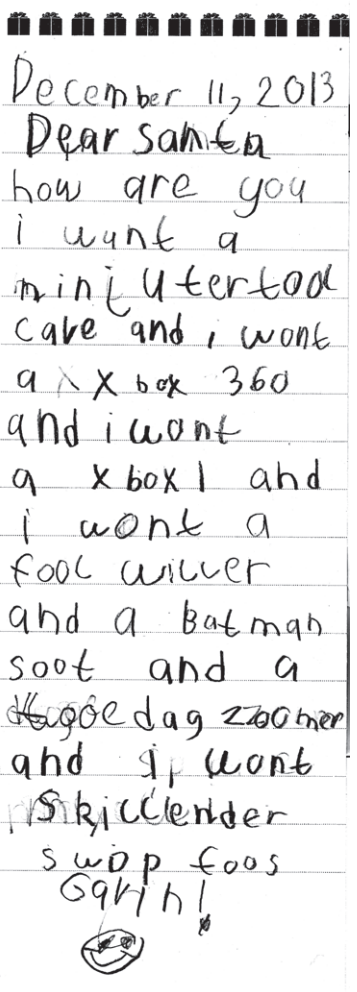 December 11, 2013
Dear Santa
how are you
i wunt a
mini utertood
care and i wont
a X box 360
and i wont
a X box 1 and
i wont a
fool willer
and a Batman
soot and a
dag zoomer
and i wont
Skillender
swop foos
Gavin!